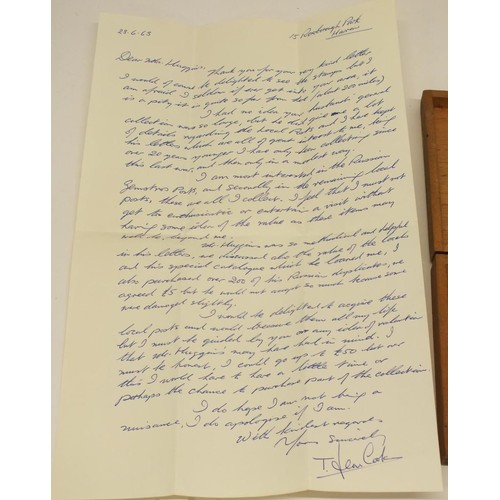 23-6-63
5 Roxborough Park
Harrow
Dear Mrs Huggins,
Thank you for your very kind letter
I would of course be delighted to see the stamps but I
am afraid I seldom if ever get into your area, it
is a pity it is quite so far from [text cut] (about 200 miles)
I had no idea your husbands general
collection was so large, but he did give me a lot
of details regarding the Local Posts and I have kept
his letters which are all of great interest to me, though
over 20 years younger I had only been collecting since
this last war, and then only in a modest way.
I am most interested in the Russian
Zemstvo Posts, and secondly in the remaining local
posts, these are all I collect. I feel that I must not
get too enthusiastic or entertain a visit without
having some idea of the value as these items may
well be beyond me.
Mr Huggins was so methodical and helpful
in his letters, we discussed also the value of the locals
and his special catalogue which he loaned me, I
also purchased over 200 of his Russian duplicates, we
agreed £5 but he would not accept so much because some
were damaged slightly.
I would be delighted to acquire these
local posts and would treasure them all my life
but I must be guided by you or any idea of valuation
that Mr Huggins may have had in mind. I
must be honest, I could go up to £50 but for
this I would have to have a little time or
perhaps the chance to purchase part of the collection
I do hope I am not being a
nuisance, I do apologise if I am.
With kindest regards
Yours sincerely
T. Cook